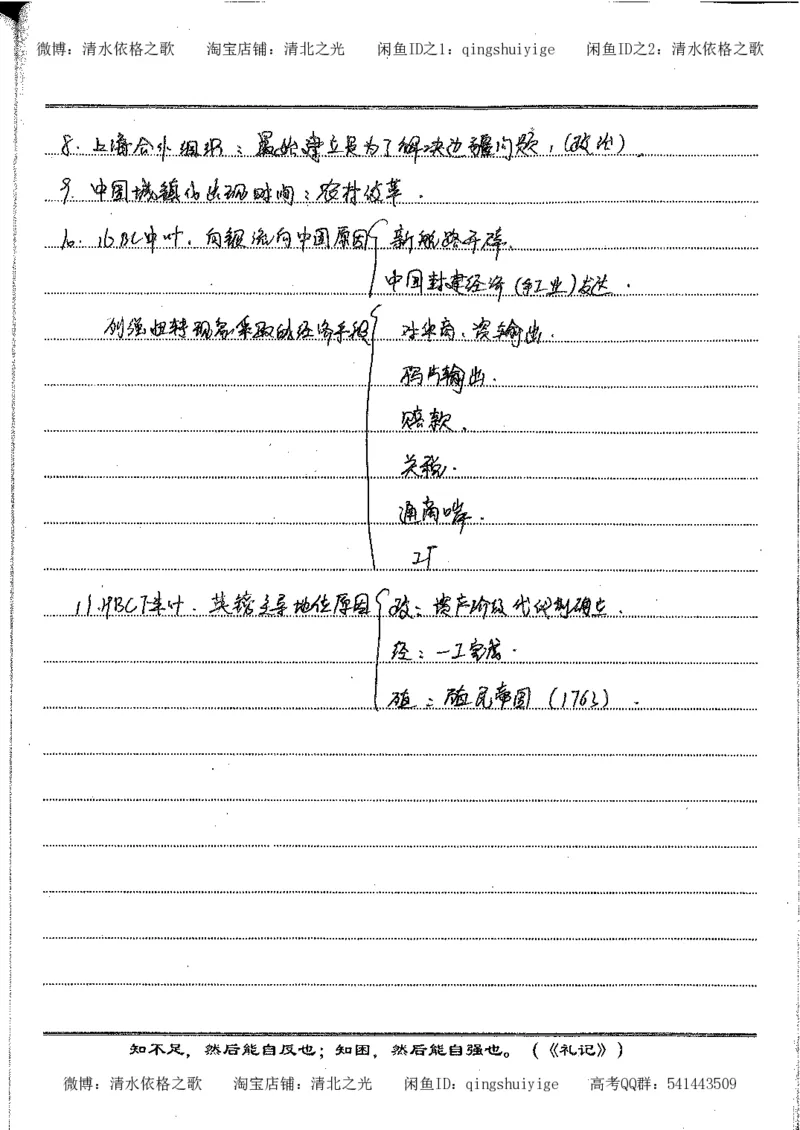 微博：清水依格之歌 淘宝店铺：清北之光 闲鱼ID之1：qingshuiyige 闲鱼ID之2：清水依格之歌
8. 上海合作组织：最始建立是为了解决边疆问题，(政治)
9. 中国城镇化出现时间：农村改革.
10. 16BC中叶，白银流向中国原因{ 新航路开辟.
中国封建经济(手工业)发达.
列强扭转现象采取的经济手段{ 对华商、资输出.
鸦片输出.
赔款.
关税.
通商口岸.
工厂
11. 19BC下半叶. 英镑主导地位原因{ 政：资产阶级代议制确立.
经：一工完成.
殖：殖民帝国 (1763).
知不足，然后能自反也；知困，然后能自强也。(《礼记》)
微博：清水依格之歌 淘宝店铺：清北之光 闲鱼ID：qingshuiyige 高考QQ群：541443509